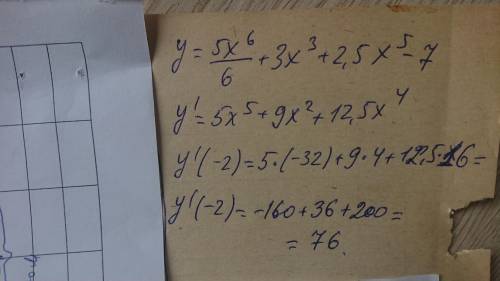 y = 5x⁶/6 + 3x³ + 2,5x⁵ - 7
y' = 5x⁵ + 9x² + 12,5x⁴
y'(-2) = 5·(-32) + 9·4 + 12,5·16 =
y'(-2) = -160 + 36 + 200 =
= 76.